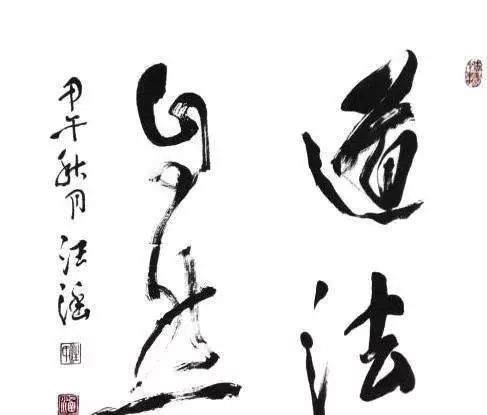 道法
自然
甲午秋月 汪瑶